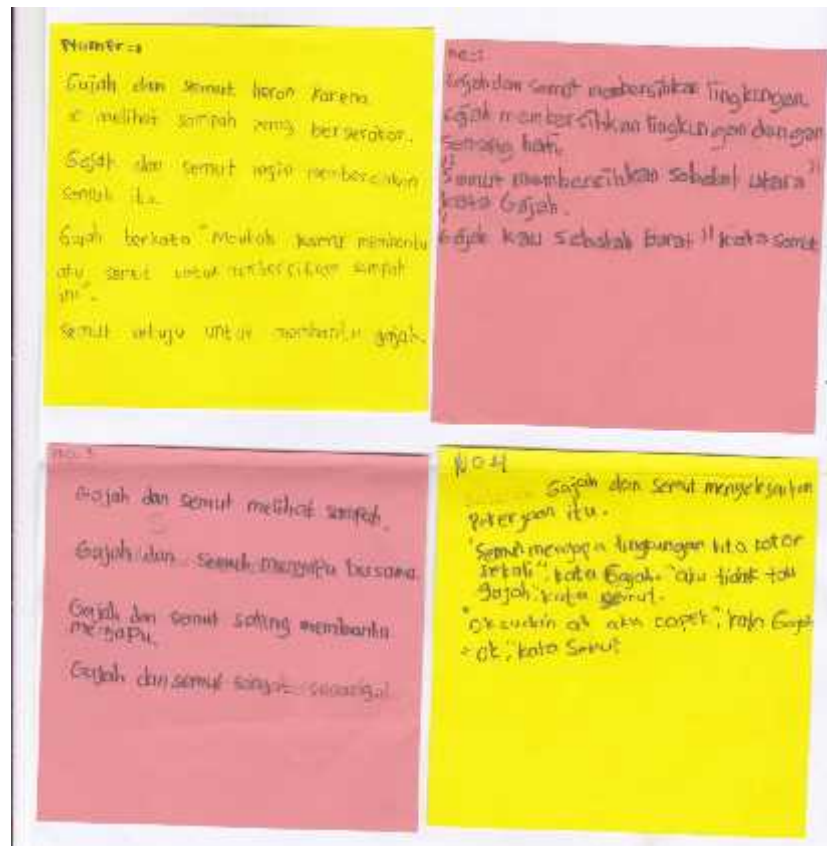 Gajah dan semut heran karena
melihat sampah yang berserakan.
Gajah dan semut ingin membersihkan
semut itu.
Gajah berkata "Maukah kamu membantu
aku semut untuk membersihkan sampah
ini".
Semut setuju untuk membantu gajah.
Gajah dan semut membersihkan lingkungan.
Gajah membersihkan lingkungan dengan
senang hati.
"Semut membersihkan sebelah utara"
kata Gajah.
"Gajah kau sebelah barat" kata semut
no.3
Gajah dan semut melihat sampah.
Gajah dan semut menyapu bersama
Gajah dan semut saling membantu
menyapu.
Gajah dan semut sangat
NO 4
Gajah dan semut
itu.
"Semut mengapa lingkungan kita kotor
sekali", kata Gajah. "aku tidak tau
gajah", kata semut.
"ok aku capek", kata Gajah
"ok", kata Semut